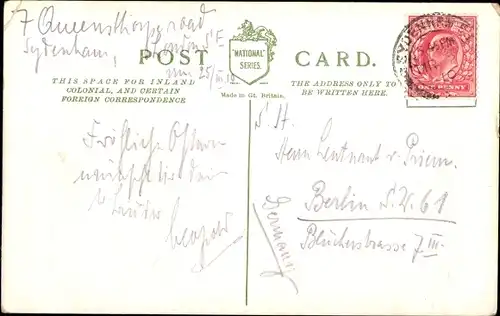 7 Queensthorpe road
Sydenham,
London S.E.
25/III 10
POST CARD.
"NATIONAL"
SERIES.
THIS SPACE FOR INLAND
COLONIAL, AND CERTAIN
FOREIGN CORRESPONDENCE
Made in Gt. Britain.
THE ADDRESS ONLY TO
BE WRITTEN HERE.
SYDENHAM
ONE PENNY
Fröhliche Ostern
wünscht dir dein
Leopold
S. H.
Herrn Leutnant v.
Berlin S.W. 61
Blücherstrasse 7 III.
Germany